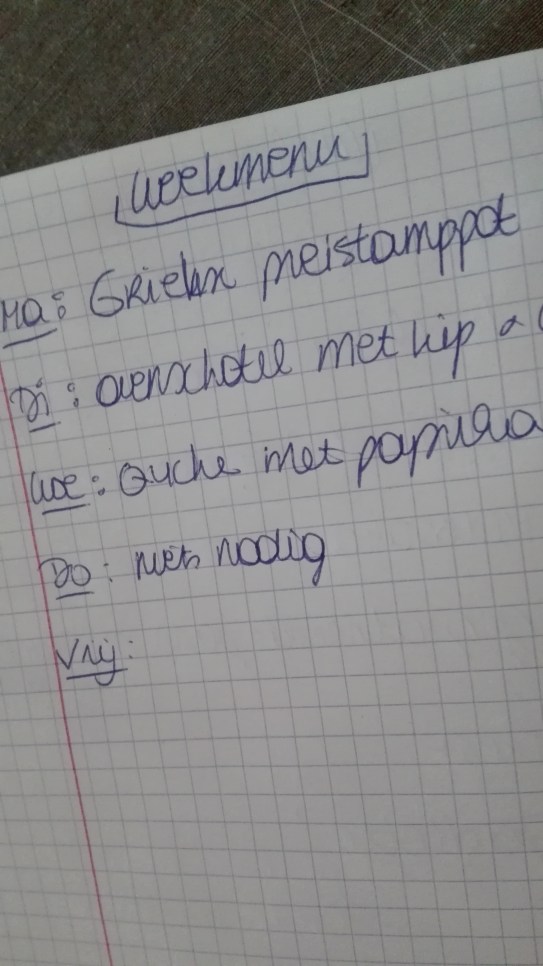 weekmenu
Ma: Grieks preistamppot
Di: ovenschotel met kip &
Woe: Quche met paprika
Do: niets nodig
Vrij: